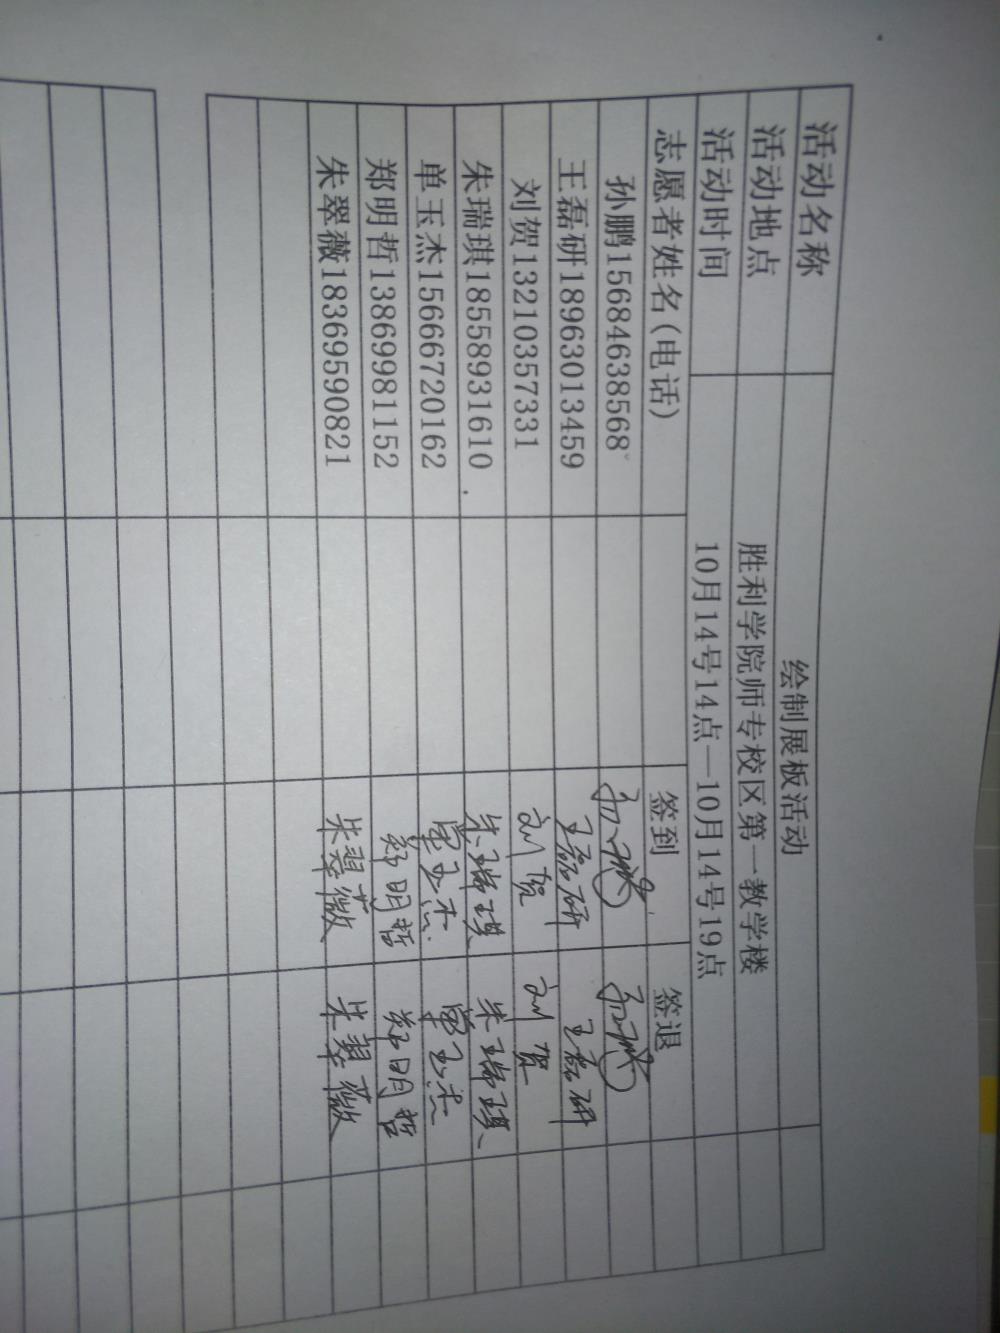 活动名称 绘制展板活动
活动地点 胜利学院师专校区第一教学楼
活动时间 10月14号14点—10月14号19点
志愿者姓名(电话) 签到 签退
孙鹏15684638568 孙鹏 孙鹏
王磊研18963013459 王磊研 王磊研
刘贺13210357331 刘贺 刘贺
朱瑞琪18558931610 朱瑞琪 朱瑞琪
单玉杰15666720162 单玉杰 单玉杰
郑明哲13869981152 郑明哲 郑明哲
朱翠薇18369590821 朱翠薇 朱翠薇